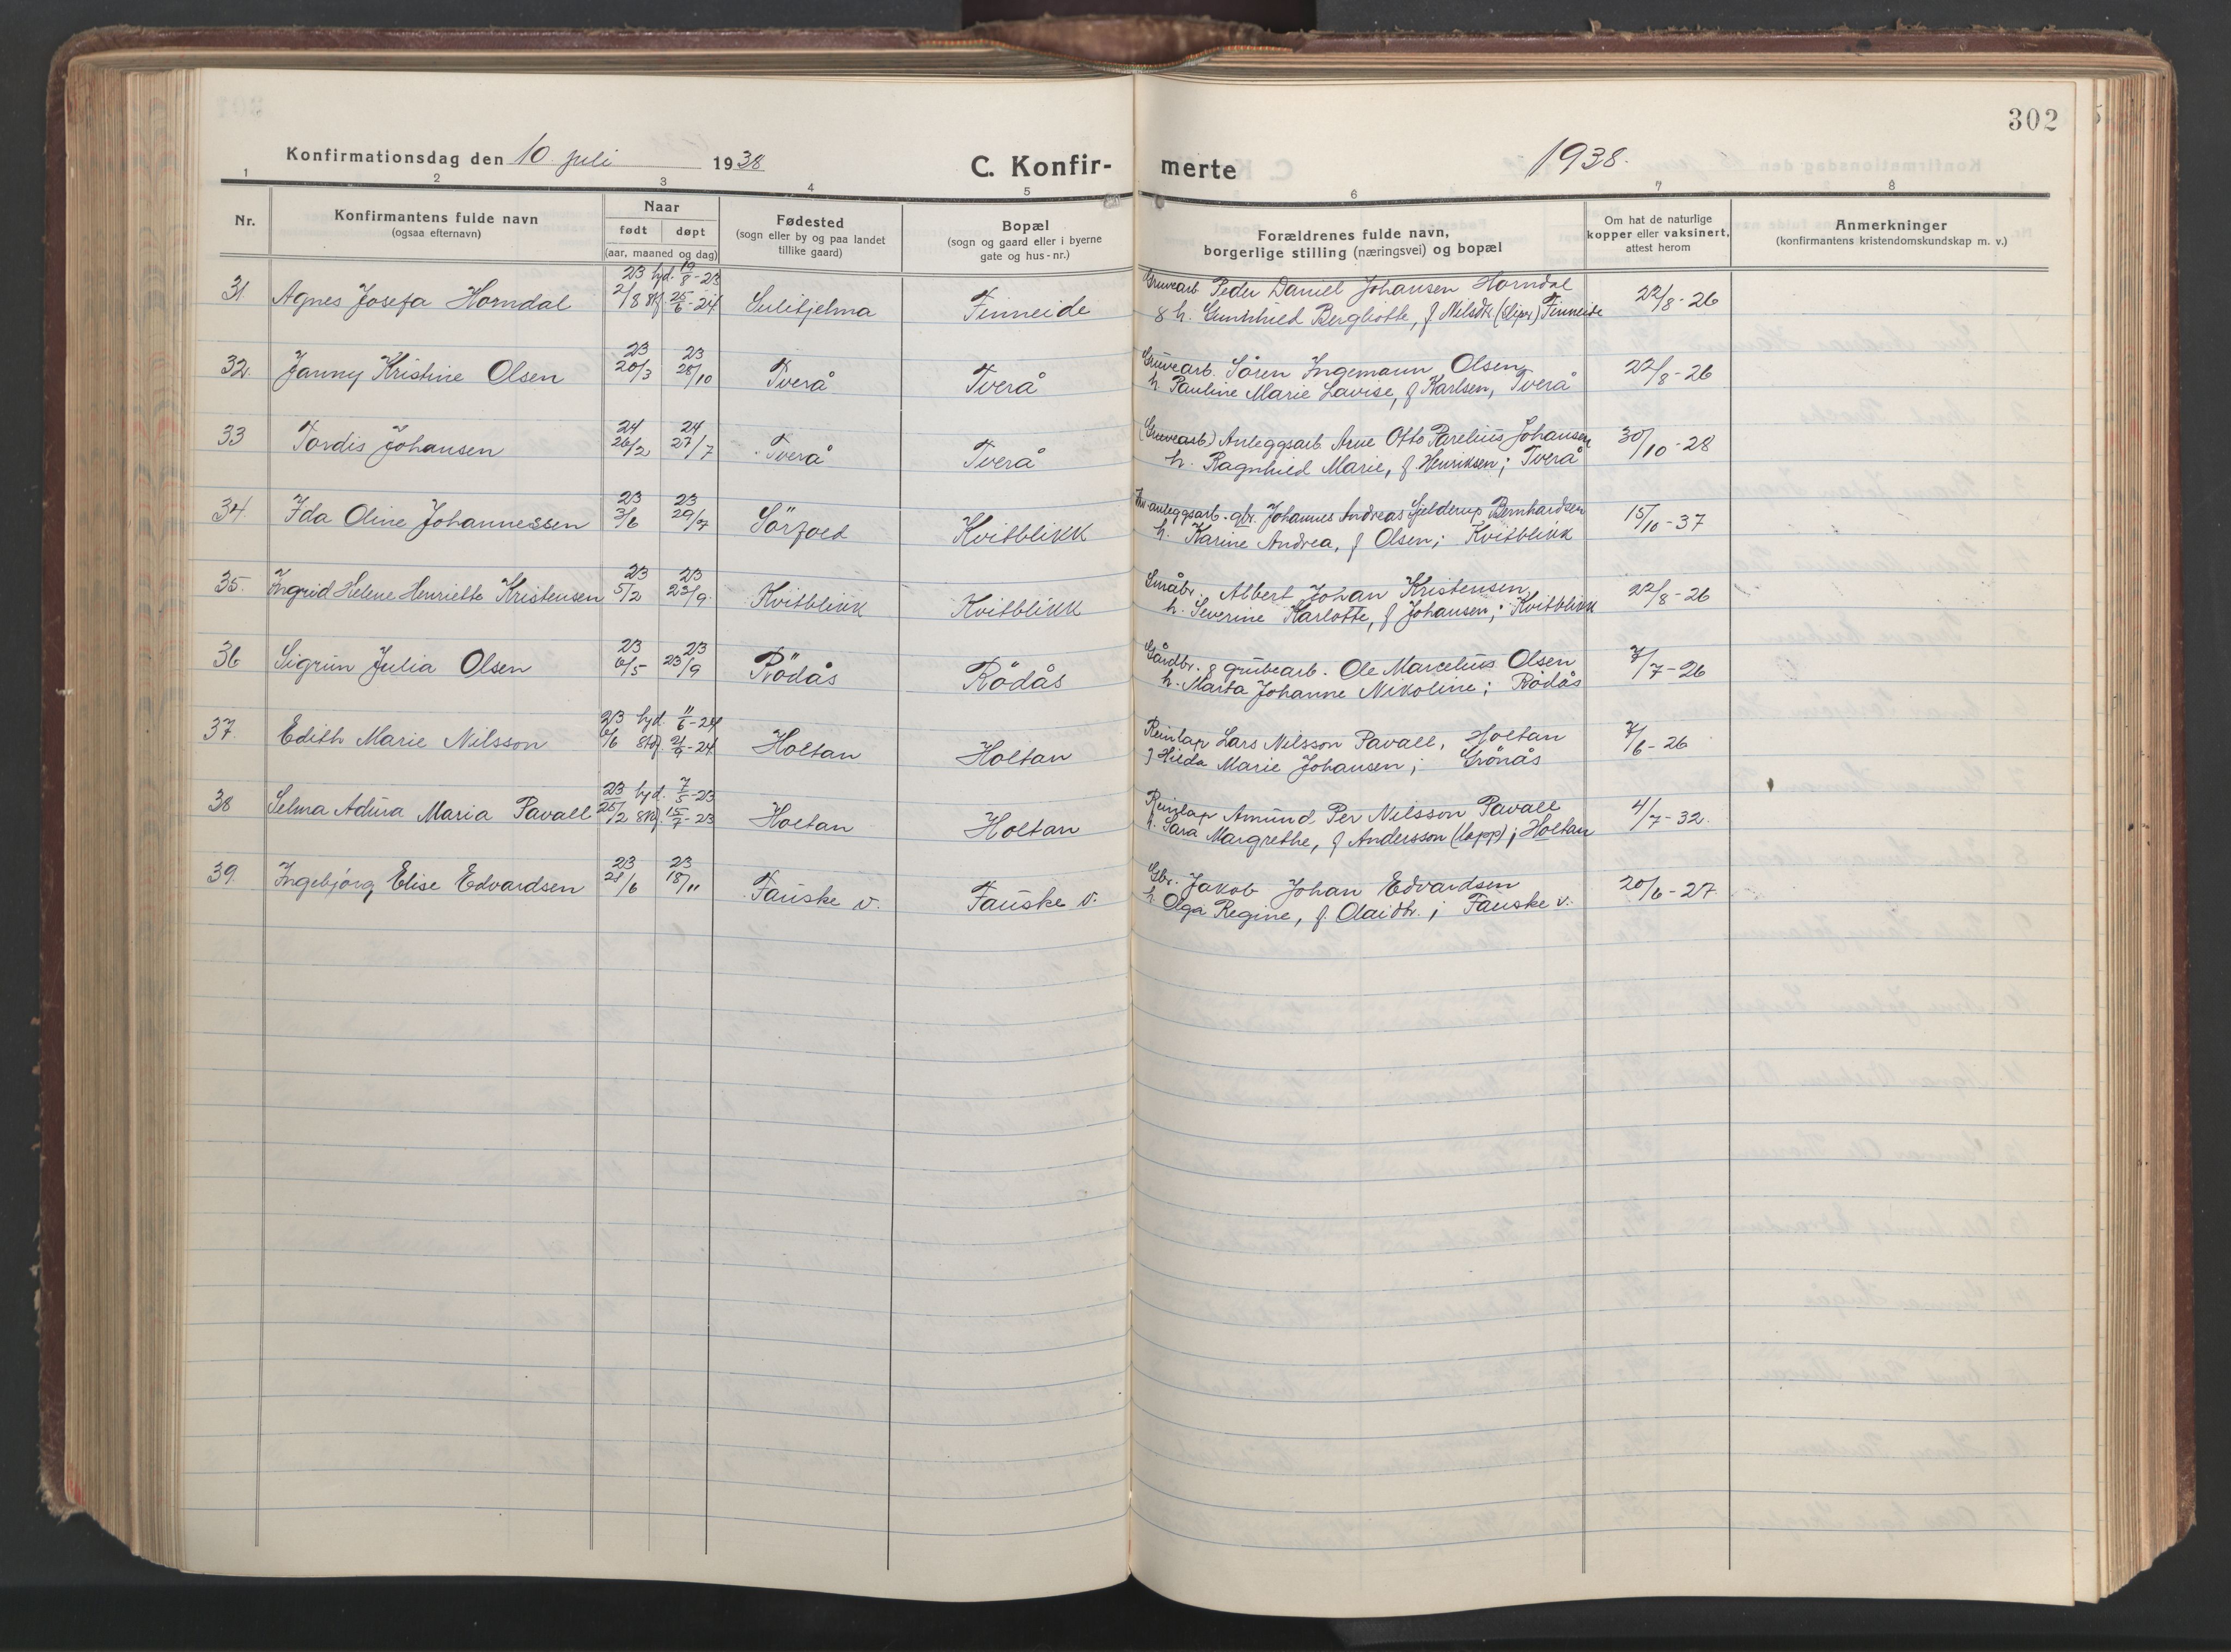 302
Konfirmationsdag den 10. juli 1938
C. Konfir-
merte
1938.
1 2 3 4 5 6 7 8
Nr.
Konfirmantens fulde navn
(ogsaa efternavn)
Naar
født døpt
(aar, maaned og dag)
Fødested
(sogn eller by og paa landet
tillike gaard)
Bopæl
(sogn og gaard eller i byerne
gate og hus-nr.)
Forældrenes fulde navn,
borgerlige stilling (næringsvei) og bopæl
Om hat de naturlige
kopper eller vaksinert,
attest herom
Anmerkninger
(konfirmantens kristendomskundskap m. v.)
23 hjd. 19/8-23 Gruvearb. Peder Daniel Johansen Horndal
31. Agnes Josefa Horndal 2/8 stf. 25/6-24 Sulitjelma Finneide & h. Gunhild Berglotte, f. Nilsdtr. Finneide 22/8-26
23 23 Gruvearb. Sören Ingemann Olsen,
32. Janny Kristine Olsen 20/3 28/10 Tverå Tverå h. Pauline Marie Lavise, f. Karlsen, Tverå 22/8-26
24 24 (Gruvearb.) Anleggsarb. Arne Otto Parelius Johansen
33 Tordis Johansen 26/2 27/7 Tverå Tverå h. Ragnhild Marie, f. Henriksen; Tverå 30/10-28
23 23 anleggsarb. gbr. Johannes Andreas Gjelderup Bernhardsen
34. Ida Oline Johannessen 3/6 29/7 Sörfold Kvitblikk h. Karine Andrea, f. Olsen; Kvitblikk 15/10-37
23 23 Småbr. Albert Johan Kristensen,
35. Ingrid Helene Henriette Kristensen 5/2 23/9. Kvitblikk Kvitblikk h. Severine Karlotte, f. Johansen; Kvitblikk 22/8-26
23 23 Gårdbr. & grubearb. Ole Marcelius Olsen
36 Sigrun Julia Olsen 6/5 23/9 Rödås Rödås h. Marta Johanne Nikoline; Rödås 7/7-26
23 hjd. 11/6-24 Reinlap Lars Nilsson Pavall, Holtan
37. Edith Marie Nilsson 6/6 stf. 21/9-24 Holtan Holtan Hilda Marie Johansen; Grönås 7/6-26
23 hjd. 7/5-23 Reinlap Amund Per Nilsson Pavall
38 Selma Adina Maria Pavall 25/2 stf. 15/7-23 Holtan Holtan h. Sara Margrethe, f. Andersson (lapp); Holtan 4/7-32.
23 23 Gbr. Jakob Johan Edvardsen
39. Ingebjörg Elise Edvardsen 28/6 18/11 Fauske v. Fauske v. h. Olga Regine, f. Olaidtr.; Fauske v. 20/6-27.